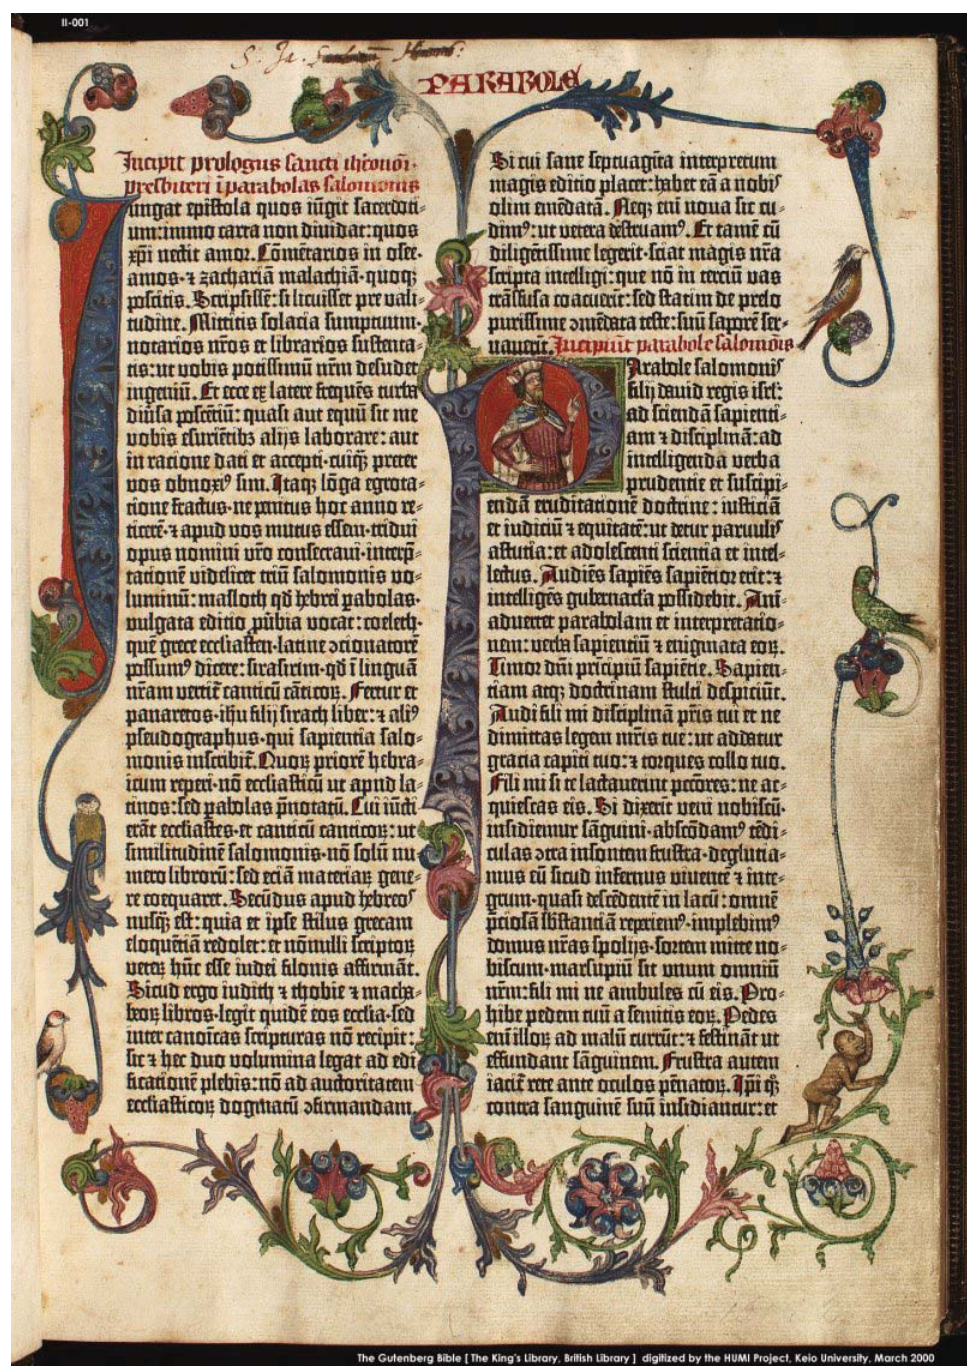 II-001
PARABOLE
Incipit prologus sancti iheronimi
presbiteri ī parabolas salomonis
Iungat epistola quos iūgit sacerdoti-
um: immo carta non diuidat: quos
xp̄i nectit amor. Cōmētarios in osee.
amos. ⁊ zachariā malachiā. quoqʒ
poscitis. Scripsissē: si licuisset pre vali-
tudine. Mittitis solacia sumptuum.
notarios nr̄os et librarios sustenta-
tis: ut vobis potissimū nr̄m desudet
ingeniū. Et ecce ex latere frequēs turba
diūsa poscētiū: quasi aut equū sit me
vobis esuriētibʒ alijs laborare: aut
in racione dati et accepti. cuiqʒ preter
vos obnoxiꝰ sim. Itaqʒ lōga egrota-
tione fractus. ne penitus hoc anno re-
ticerē. ⁊ apud vos mutus essem. tridui
opus nomini vr̄o consecraui. interp̄-
tationē videlicet triū salomonis vo-
luminū: masloth qd̄ hebrei ꝑabolas.
vulgata editio ꝓūbia vocat: coeleth.
quē grece ecclīasten. latine ↄcionatorē
possumꝰ dicere: sirasirim. qd̄ ī linguā
nr̄am vertit̄ canticū cāticoꝝ. Fertur et
panaretos. ih̄u filij sirach liber: ⁊ aliꝰ
pseudographus. qui sapientia salo-
monis inscribit̄. Quoꝝ priorē hebra-
icum reperi. nō ecclīasticū ut apud la-
tinos: sed ꝑabolas p̄notatū. Cui iūcti
erāt ecclīastes. et canticū canticoꝝ: ut
similitudinē salomonis. nō solū nu-
mero librorū: sed etiā materiaꝝ gene-
re coequaret. Secūdus apud hebreos
nusqʒ est: quia et ipse stilus grecam
eloquētiā redolet: et nōnulli scriptoꝝ
veteꝝ hūc esse iudei filonis affirmāt.
Sicud ergo iudith ⁊ thobie ⁊ macha-
beoꝝ libros. legit quidē eos ecclīa. sed
inter canoīcas scripturas nō recipit:
sic ⁊ hec duo volumina legat ad edi-
ficationē plebis: nō ad auctoritatem
ecclīasticoꝝ dogmatū ↄfirmandam.
Si cui sane septuagīta interpretum
magis editio placet: habet eā a nobis
olim emēdatā. Neqʒ eni ̄noua sic cu-
dimꝰ: ut vetera destruamꝰ. Et tamē cū
diligētissime legerit. sciat magis nr̄a
scripta intelligi: que nō in terciū vas
trāsfusa coacuerit: sed statim de prelo
purissime ↄmēdata teste: suū saporē ser-
uauerit. Incipiūt parabole salomōis
Parabole salomonis
filij dauid regis isrl̄:
ad sciendā sapienti-
am ⁊ disciplinā: ad
intelligenda verba
prudentie et suscipi-
endā eruditationē doctrine: iusticiā
et iudiciū ⁊ equitatē: ut detur paruulis
astutia: et adolescenti scientia et intel-
lectus. Audiēs sapiēs sapiētior erit: ⁊
intelligēs gubernacła possidebit. Ani-
aduertet parabolam et interpretatio-
nem: verba sapientiū ⁊ enigmata eoꝝ.
Timor dn̄i prīcipiū sapiētie. Sapien-
tiam atqʒ doctrinam stulti despiciūt.
Audi fili mi disciplinā pr̄is tui et ne
dimittas legem mr̄is tue: ut addatur
gracia capiti tuo: ⁊ torques collo tuo.
Fili mi si te lactauerint pctōres: ne ac-
quiescas eis. Si dixerīt veni nobiscū.
insidiemur sāguini. abscōdamꝰ tēdi-
culas ↄtra insontem frustra. deglutia-
mus eū sicud infernus viuentē ⁊ inte-
grum. quasi descēdentē in lacū: omnē
p̄ciosā s̄bstanciā reperiemꝰ. implebimꝰ
domus nr̄as spolijs. sortem mitte no-
biscum. marsupiū sit vnum omniū
nr̄m: fili mi ne ambules cū eis. Pro-
hibe pedem tuū a semitis eoꝝ. Pedes
eni ̄illoꝝ ad malū currūt: ⁊ festināt ut
effundant sāguinem. Frustra autem
iacit̄ rete ante oculos pēnatoꝝ. Ipi qʒ
contra sanguinē suū insidiantur: et
The Gutenberg Bible [ The King's Library, British Library ] digitized by the HUMI Project, Keio University, March 2000